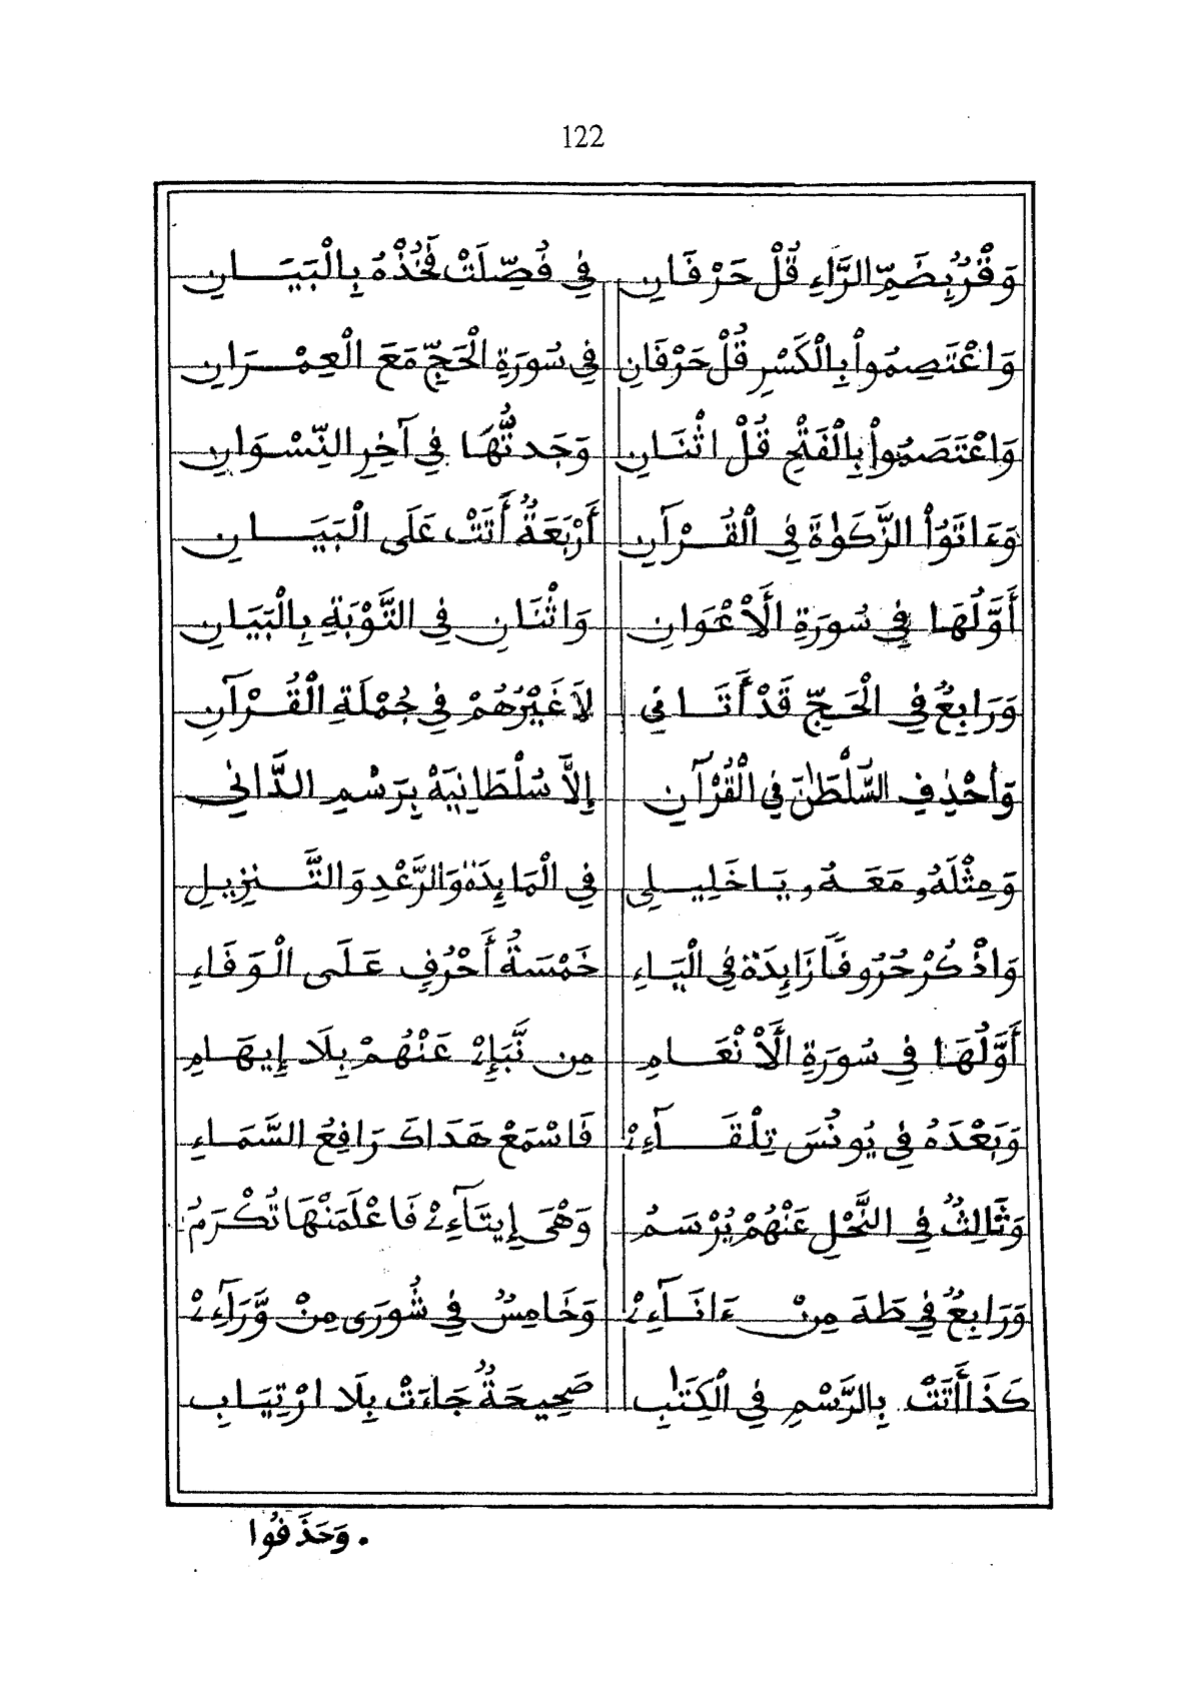 122
وَقْرُ بِضَمِّ الرَّاءِ قُلْ حَرْفَانِ فِي فُصِّلَتْ فَخُذْهُ بِالْبَيَانِ
وَاعْتَصِمُواْ بِالْكَسْرِ قُلْ حَرْفَانِ فِي سُورَةِ الْحَجِّ مَعَ الْعِمْرَانِ
وَاعْتَصَمُواْ بِالْفَتْحِ قُلْ اثْنَانِ وَجَدتُّهَا فِي آخِرِ النِّسْوَانِ
وَءَاتَوُاْ الزَّكَوٰةَ فِي الْقُرْآنِ أَرْبَعَةٌ أَتَتْ عَلَى الْبَيَانِ
أَوَّلُهَا فِي سُورَةِ الَأعْوَانِ وَاثْنَانِ فِي التَّوْبَةِ بِالْبَيَانِ
وَرَابِعٌ فِي الْحَجِّ قَدْ أَتَانِي لَا غَيْرُهُمْ فِي جُمْلَةِ الْقُرْآنِ
وَاحْذِفِ السُّلْطَٰنَ فِي الْقُرْآنِ إِلَّا سُلْطَانِيَهْ بِرَسْمِ الدَّانِي
وَمِثْلَهُ مَعَهُ يَا خَلِيلِي فِي الْمَايِدَةِ وَالرَّعْدِ وَالتَّنزِيلِ
وَاذْكُرْ حُرُوفًا زَايِدَةً فِي الْيَاءِ خَمْسَةُ أَحْرُفٍ عَلَى الْوَفَاءِ
أَوَّلُهَا فِي سُورَةِ الَأنْعَامِ مِن نَّبَإِيْ عَنْهُمْ بِلَا إِيهَامِ
وَبَعْدَهُ فِي يُونُسَ تِلْقَآءِيْ فَاسْمَعْ هَدَاكَ رَافِعُ السَّمَاءِ
وَثَالِثٌ فِي النَّحْلِ عَنْهُمْ يُرْسَمُ وَهْيَ إِيتَآءِيْ فَاعْلَمَنْهَا تُكْرَمُ
وَرَابِعٌ فِي طَهَ مِنْ ءَانَآءِيْ وَخَامِسٌ فِي شُورَى مِنْ وَّرَآءِيْ
كَذَا أَتَتْ بِالرَّسْمِ فِي الْكِتَٰبِ صَحِيحَةٌ جَاءَتْ بِلَا ارْتِيَابِ
. وَحَذَفُوا